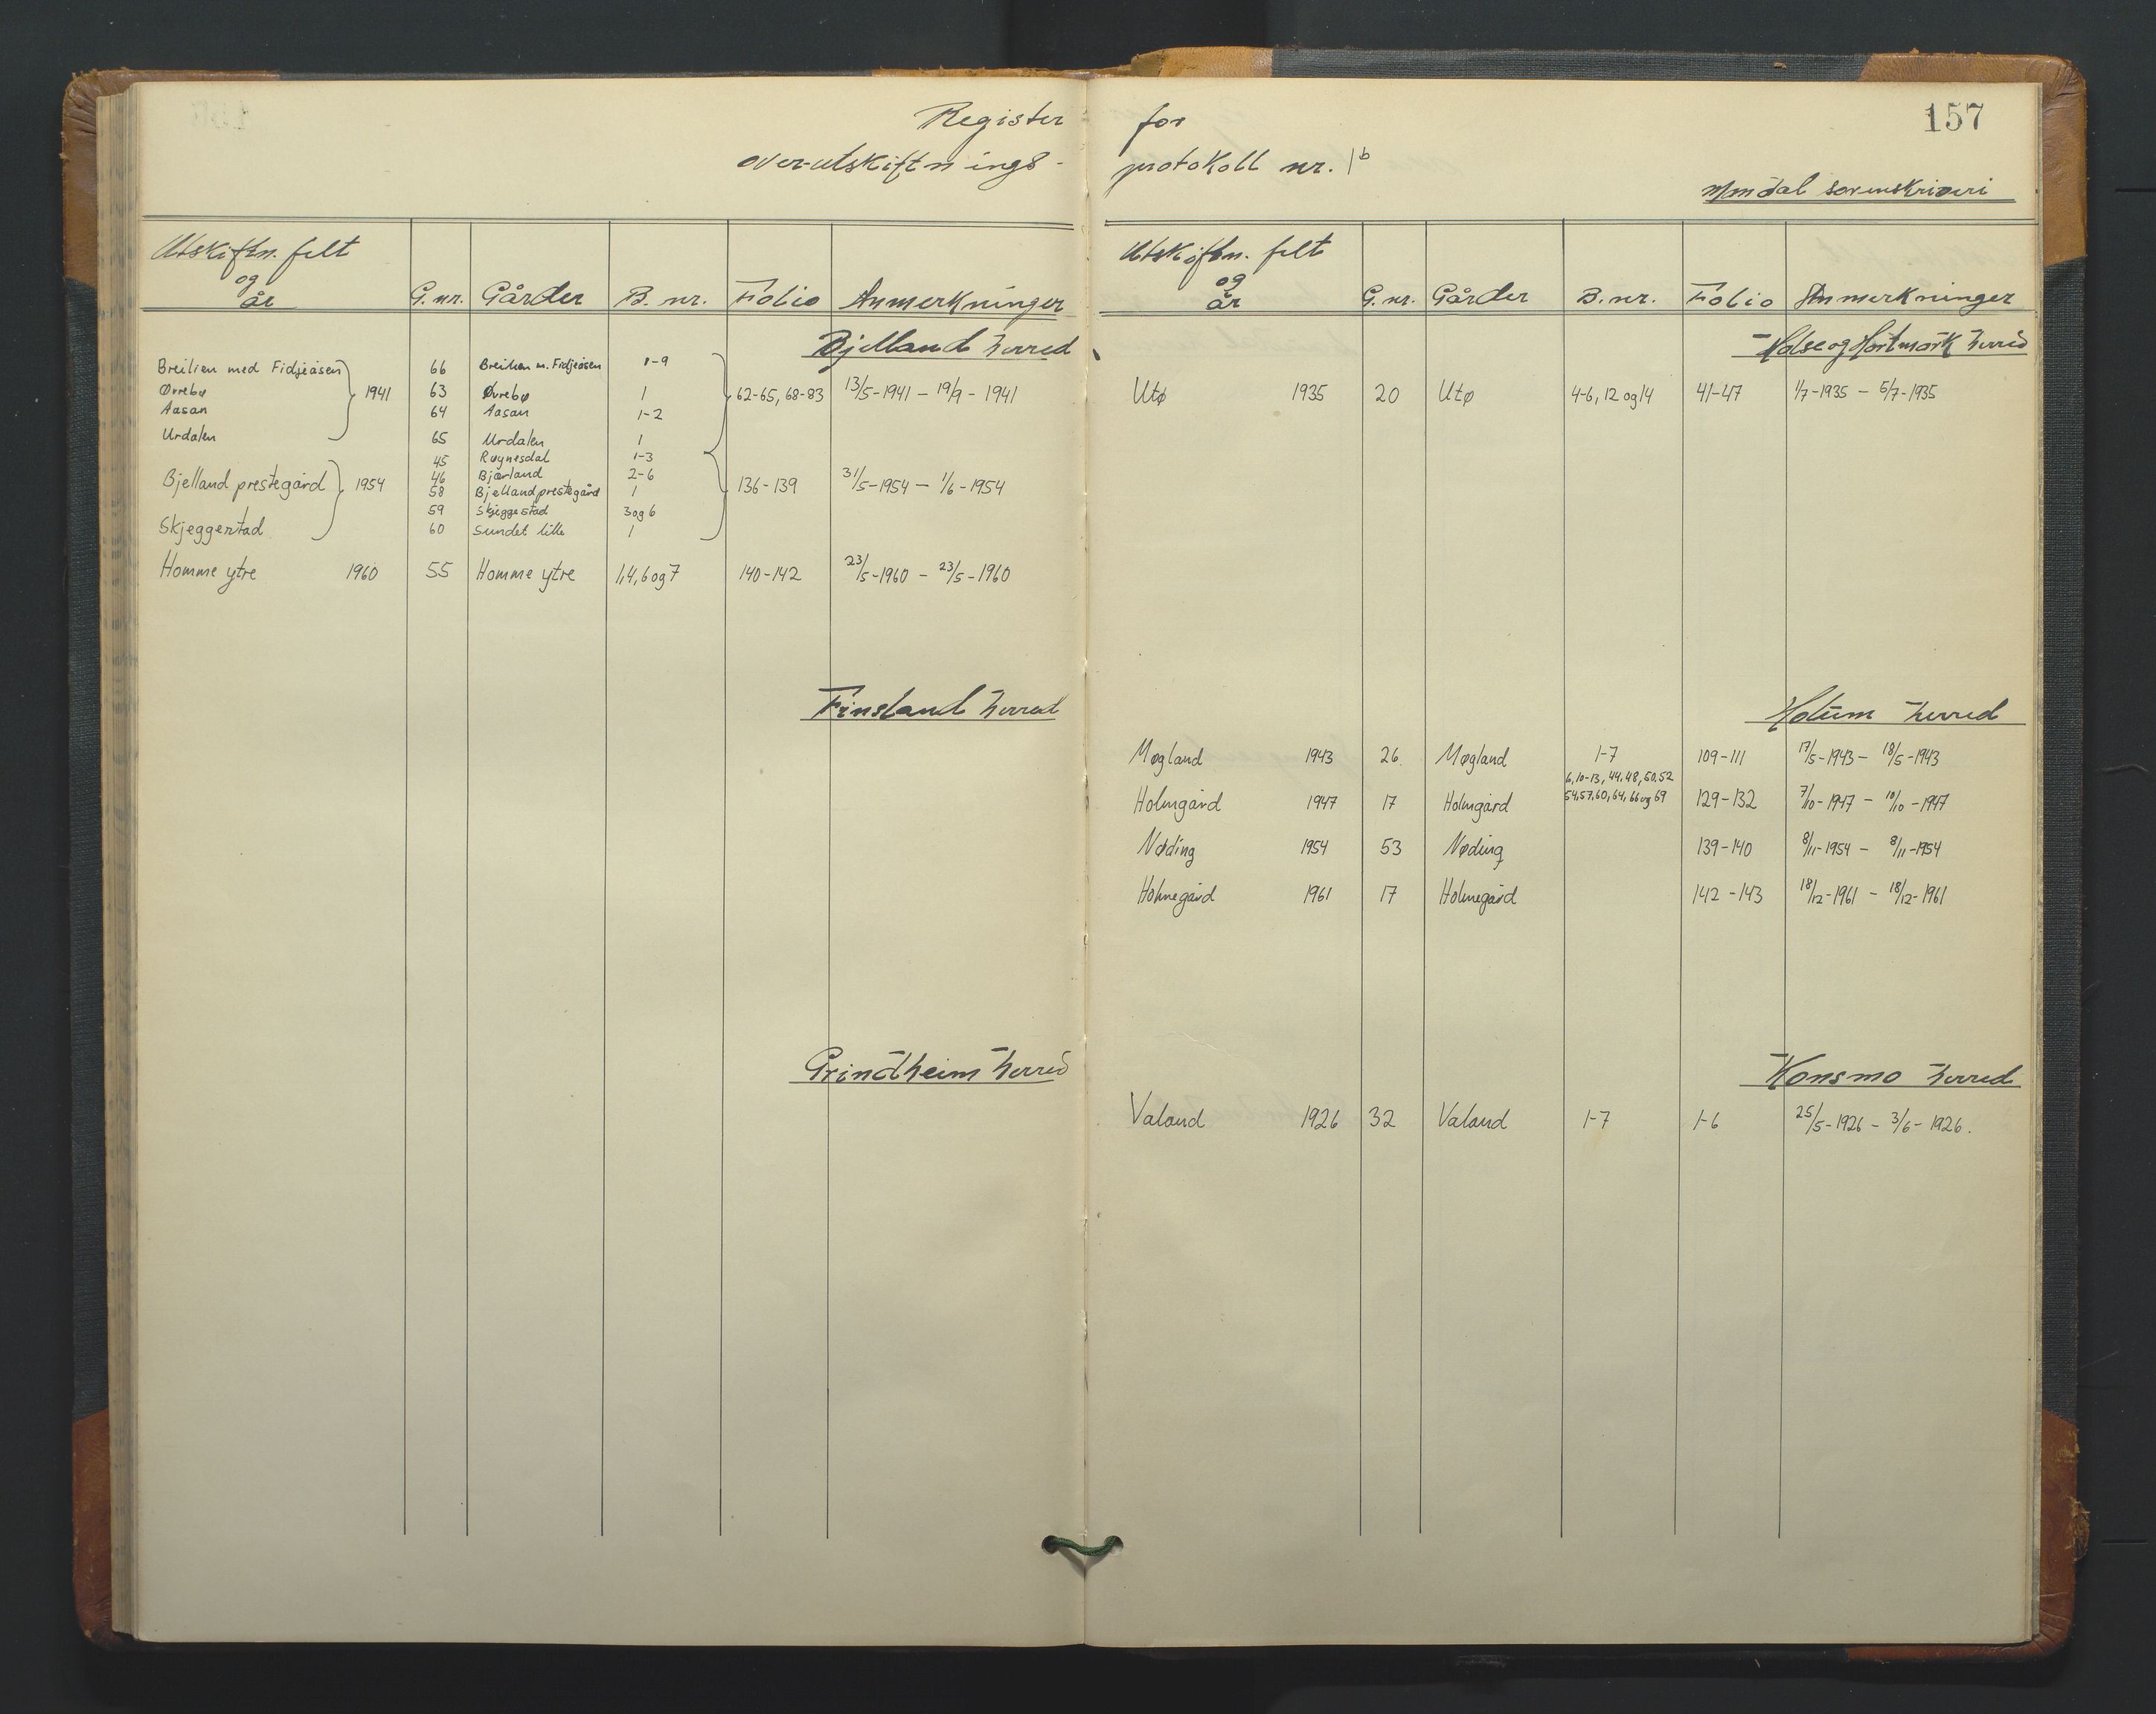 Register for 157
over-utskiftnings- protokoll nr. 1b
Mandal sorenskriveri
Utskiftn. felt
og
år G.nr. Gårder B. nr. Folio Anmerkninger
Bjelland herred
Breilien med Fidjeåsen 66 Breilien m. Fidjeåsen 1-9
Øvrebø 1941 63 Øvrebø 1 62-65, 68-83 13/5-1941 – 19/9 - 1941
Aasan 64 Aasan 1-2
Urdalen 65 Urdalen 1
45 Røynesdal 1-3
46 Bjærland 2-6
Bjelland prestegård 1954 58 Bjelland prestegård 1 136-139 31/5-1954 – 1/6-1954
59 Skjeggestad 3 og 6
Skjeggestad 60 Sundet lille 1
Homme ytre 1960 55 Homme ytre 1,4,6 og 7 140-142 23/5-1960 – 23/5-1960
Finsland herred
Grindheim herred
Utskiftn. felt
og
år G.nr. Gårder B.nr. Folio Anmerkninger
Halse og Hartmark herred
Utø 1935 20 Utø 4-6, 12 og 14 41-47 1/7-1935 – 5/7-1935
Holum herred
Møgland 1943 26. Møgland 1-7 109-111 17/5-1943 – 18/5-1943
6,10-13, 44,48, 50,52
Holmgård 1947 17 Holmgård 54,57,60,64,66 og 69 129-132 7/10-1947 – 10/10-1947
Nøding 1954 53 Nøding 139-140 8/11-1954 – 8/11-1954
Holmegård 1961 17 Holmegård 142-143 18/12-1961 – 18/12-1961
Konsmo herred
Valand 1926 32 Valand 1-7 1-6 25/5-1926 – 3/6-1926.